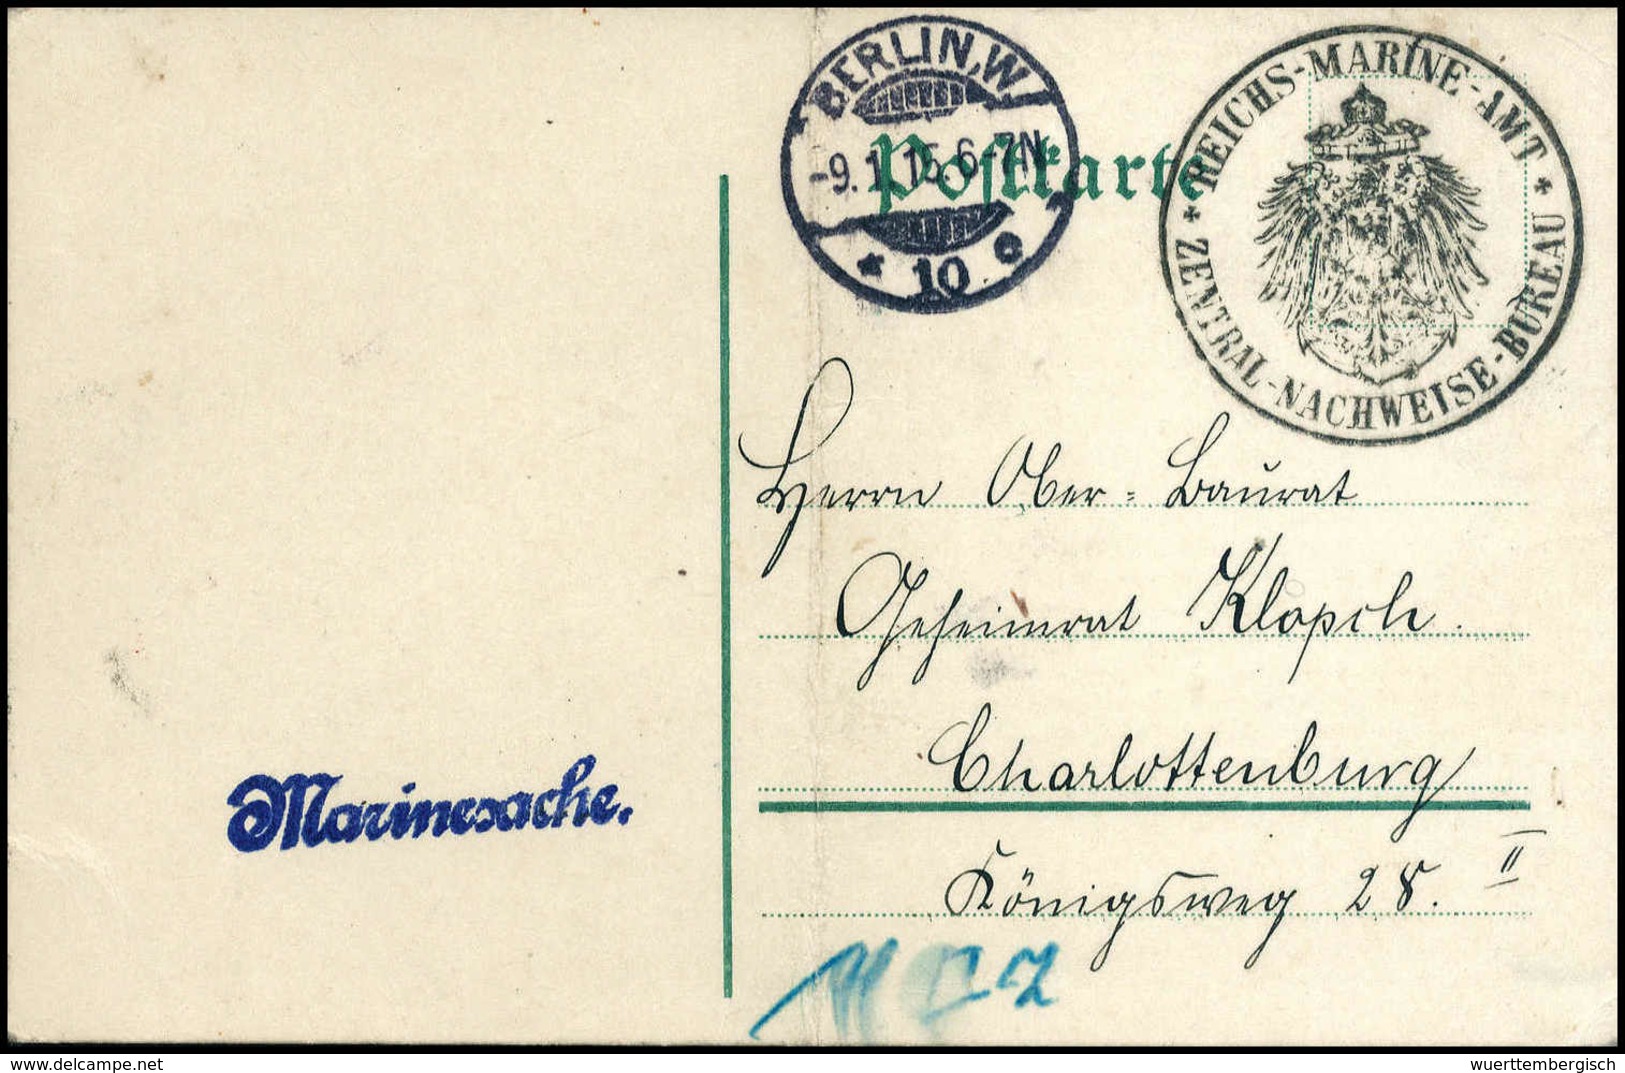 BERLIN, W.
-9.1.15.6-7N.
* 10 e
Postkarte
* REICHS-MARINE-AMT *
ZENTRAL-NACHWEISE-BUREAU
Herrn Ober-Baurat
Geheimrat Klopsch.
Charlottenburg
Königsweg 28. II
Marinesache.
delcampe.net
wuerttembergisch